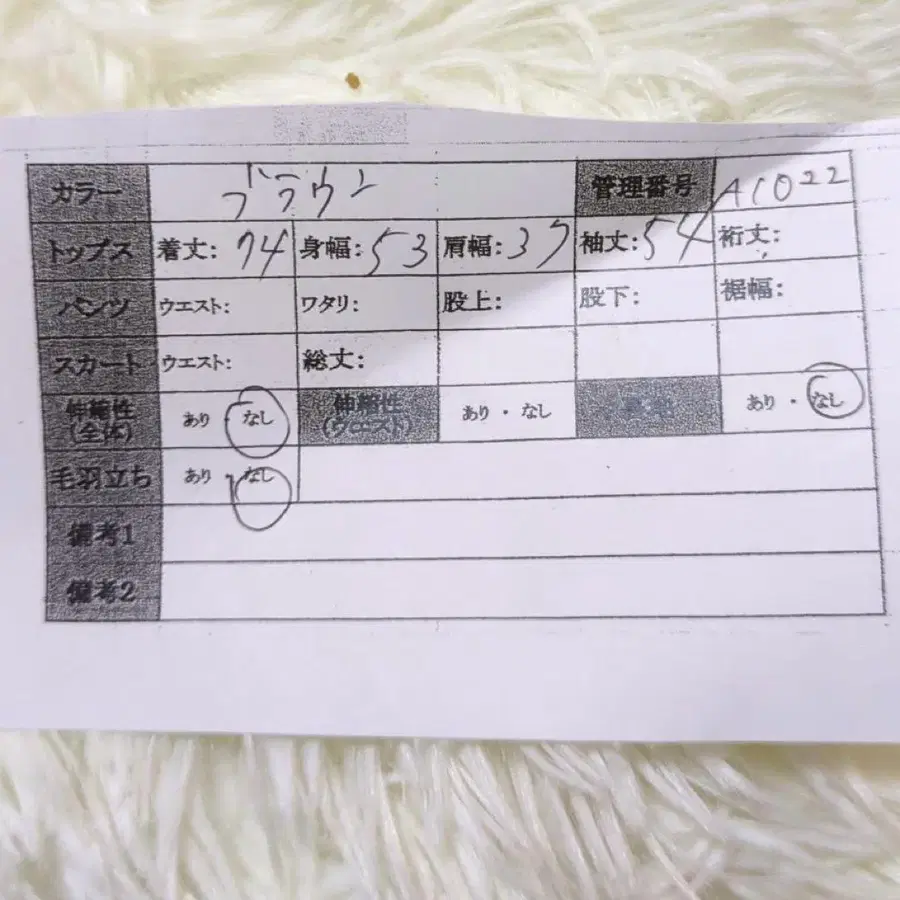 カラー ブラウン 管理番号 A1022
トップス 着丈: 74 身幅: 53 肩幅: 37 袖丈: 54 裄丈:
パンツ ウエスト: ワタリ: 股上: 股下: 裾幅:
スカート ウエスト: 総丈:
伸縮性 (全体) あり ・ なし 伸縮性 (ウエスト) あり ・ なし あり ・ なし
毛羽立ち あり ・ なし
備考1
備考2